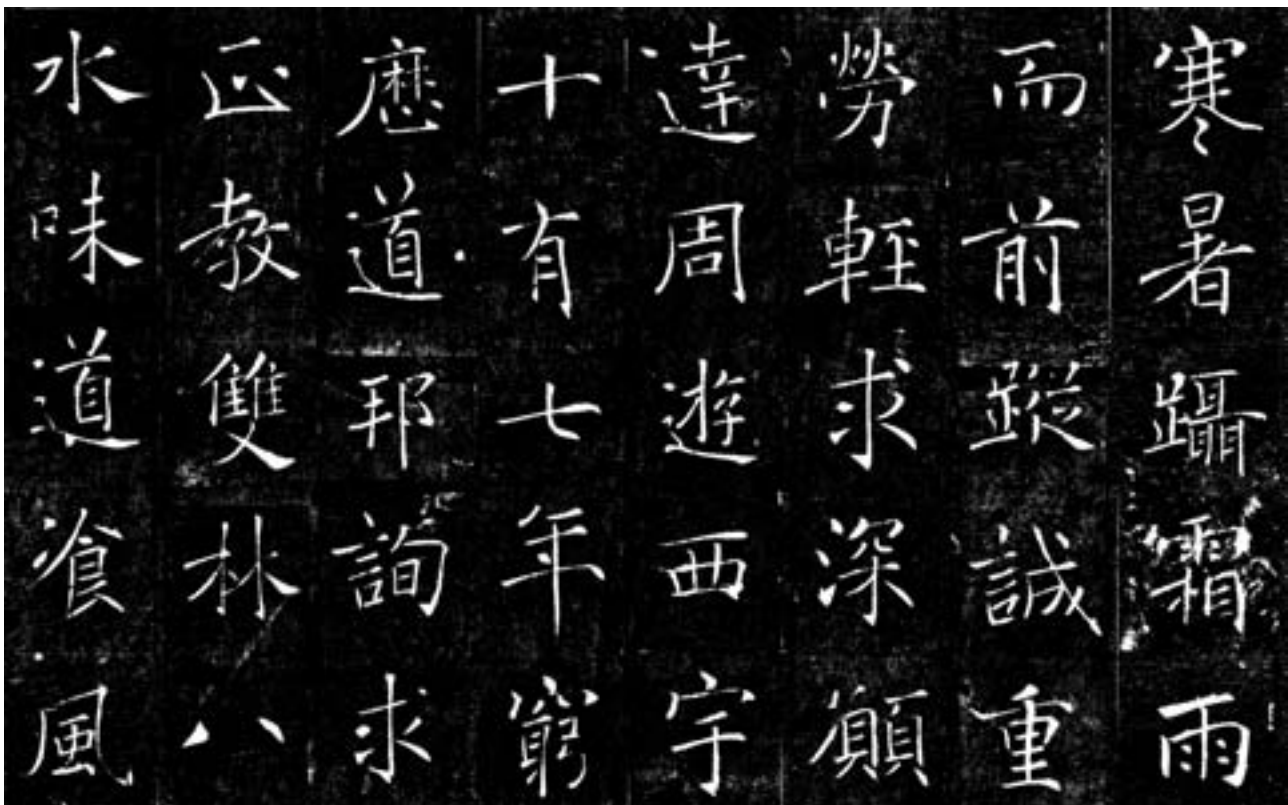 寒暑躡霜雨
而前蹤誠重
勞輕求深願
達周遊西宇
十有七年窮
歷道邦詢求
正教雙林八
水味道飡風